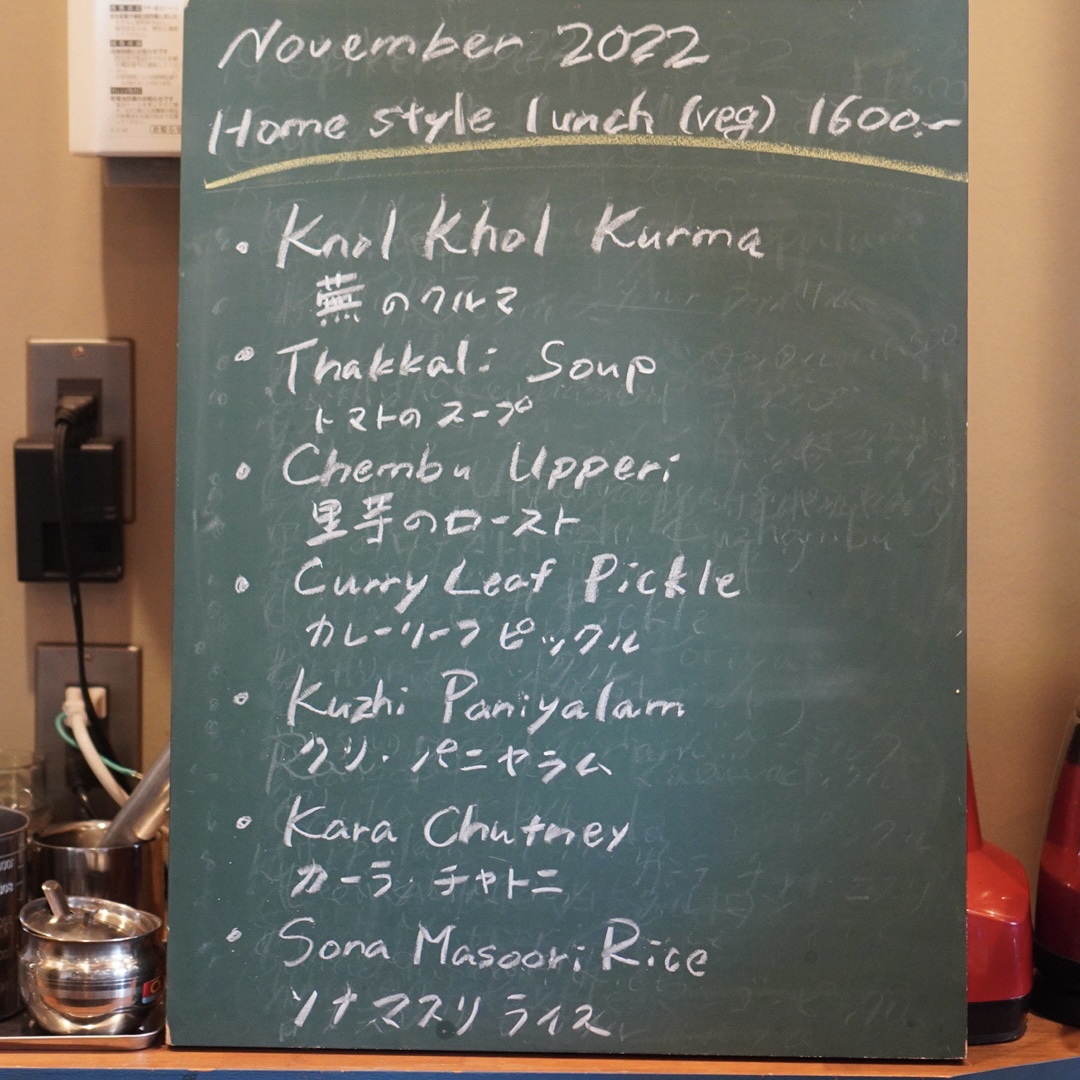 November 2022
Home style lunch (veg) 1600.-
• Knol Khol Kurma
蕪のクルマ
• Thakkali Soup
トマトのスープ
• Chembu Upperi
里芋のロースト
• Curry Leaf Pickle
カレーリーフピックル
• Kuzhi Paniyalam
クリ・パニヤラム
• Kara Chutney
カーラ・チャトニ
• Sona Masoori Rice
ソナマスリライス